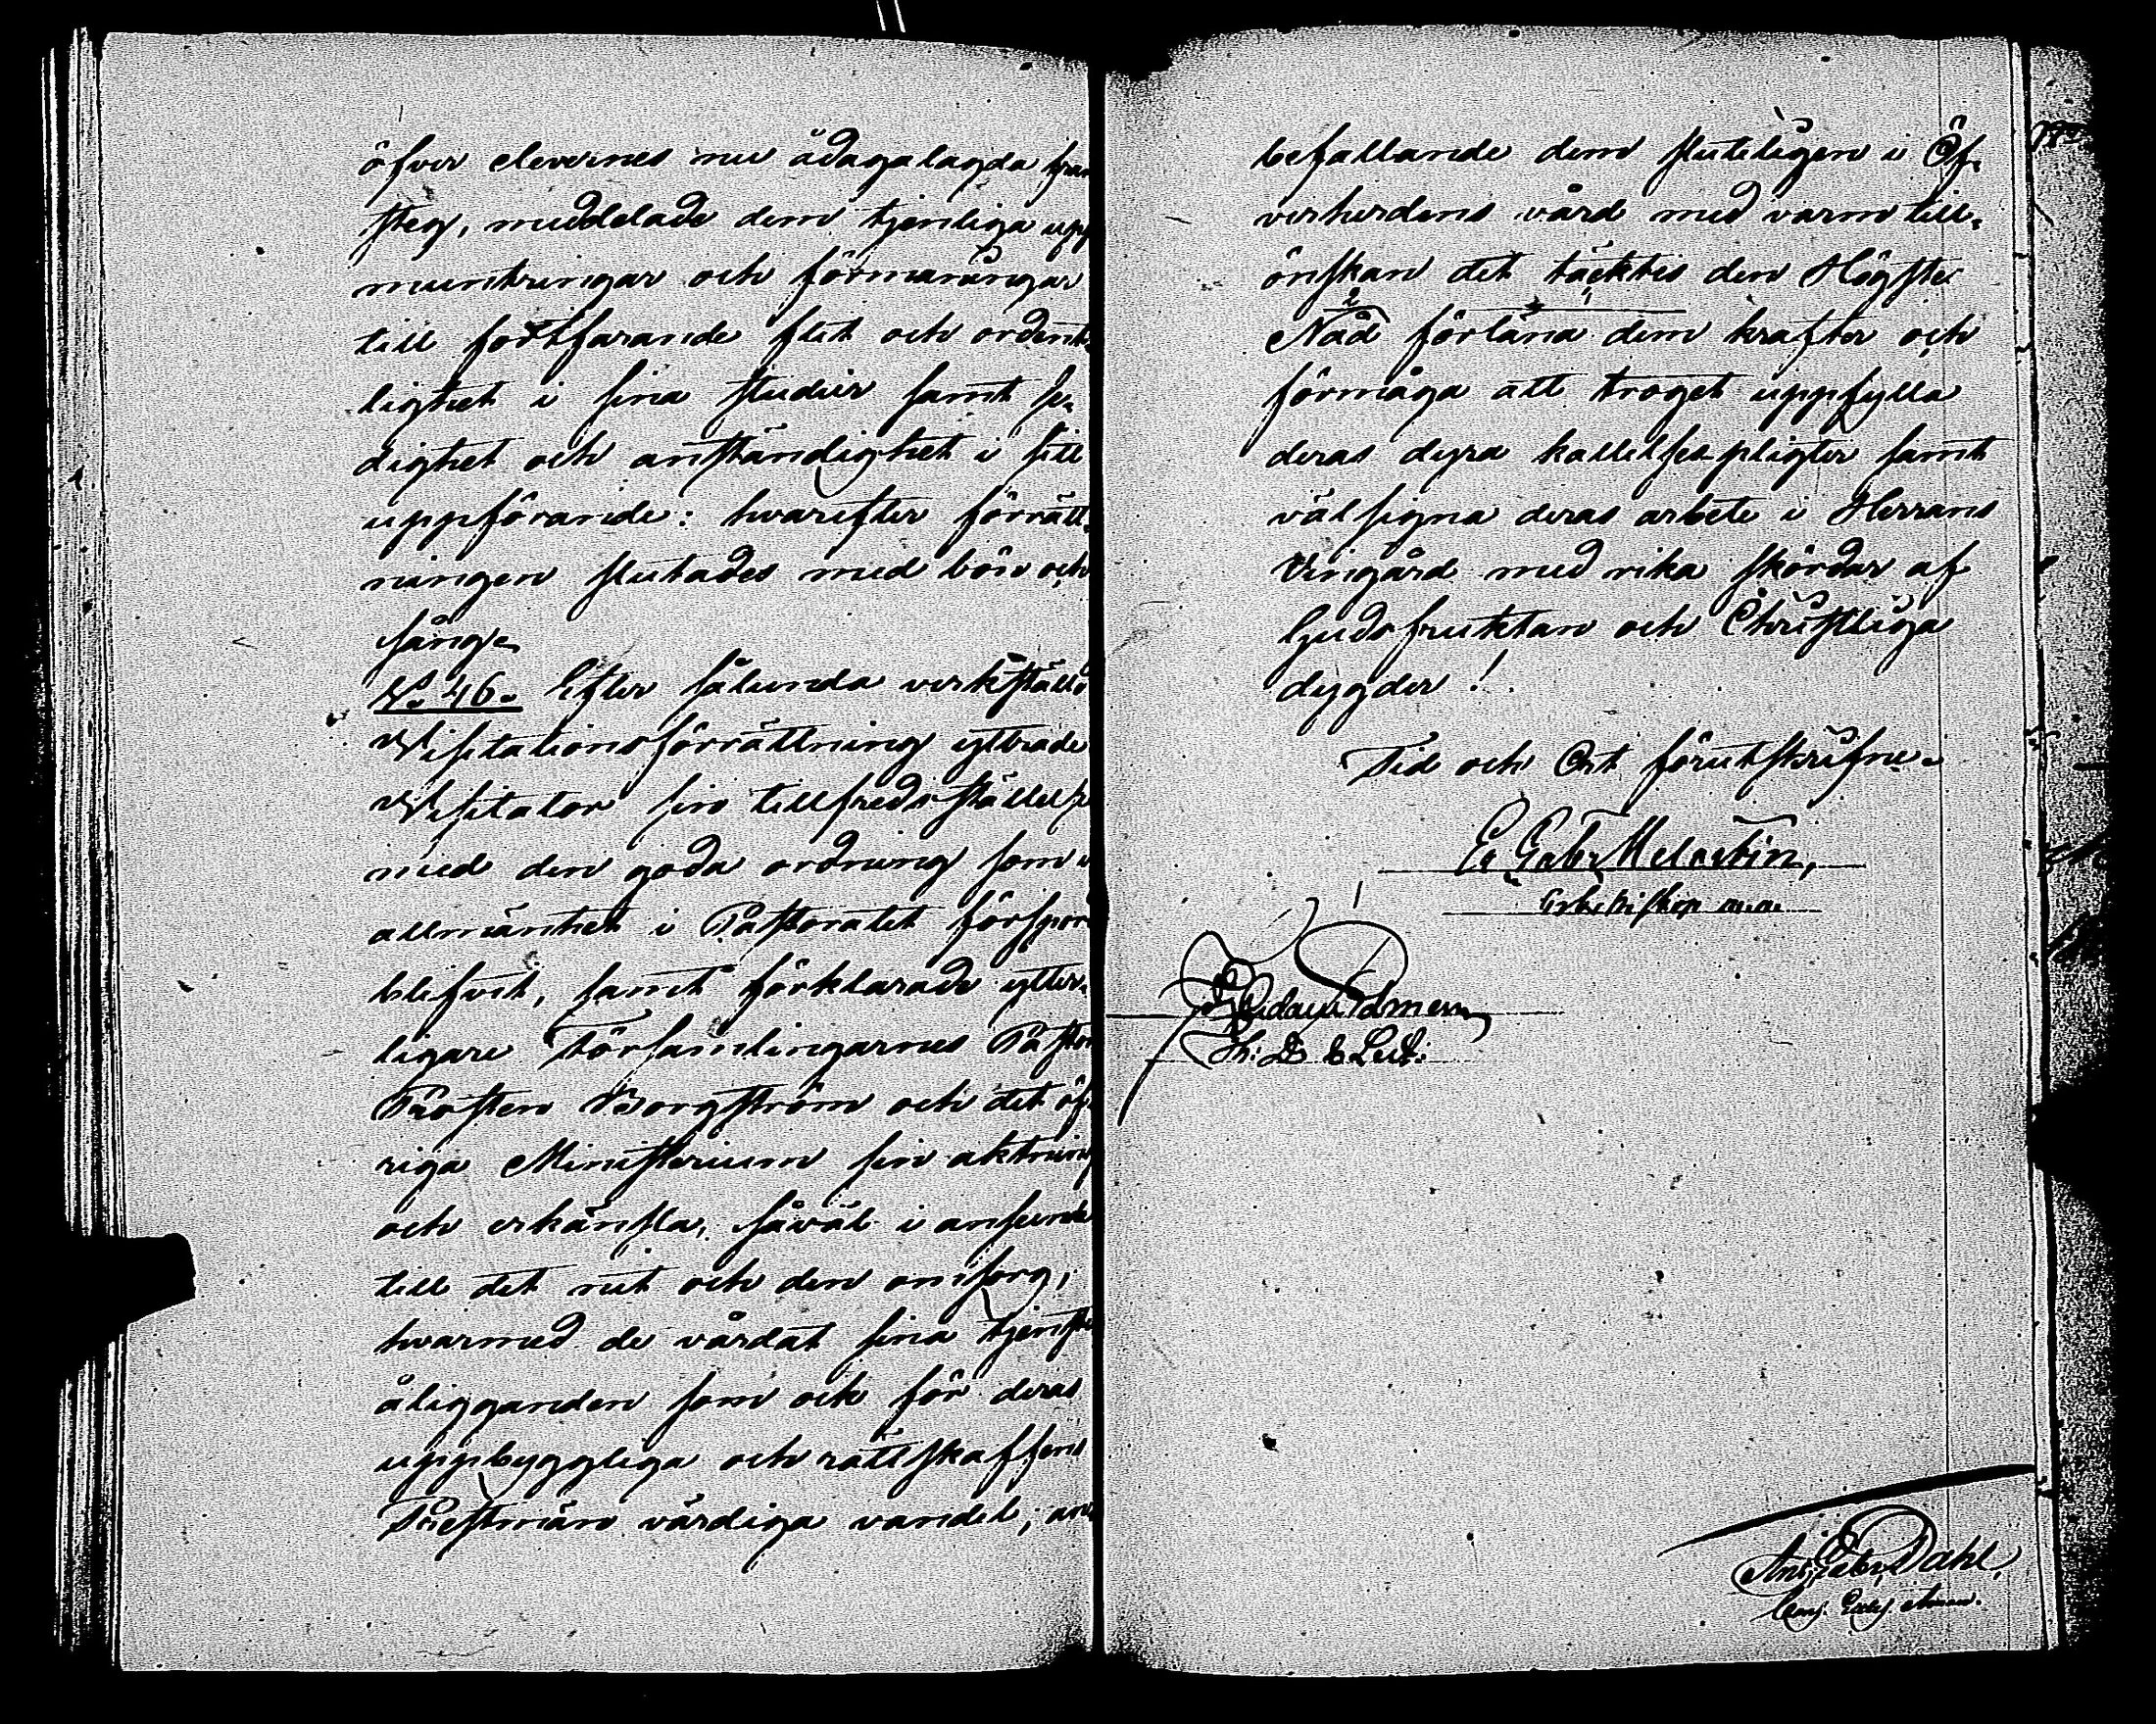 öfver elevernes nu ådagalagda fram
steg, meddelade dem tjenliga upp
muntringar och förmaningar
till fortfarande flit och ordent-
lighet i sina studier samt se-
dighet och anständighet i sitt
uppförande: hvarefter förrätt-
ningen slutades med bön och
sång.
N:o 46. Efter sålunda verkställd
Visitationsförrättning yttrade
Visitator sin tillfredsställelse
med den goda ordning som i
allmänhet i Pastoratet förspord
blifvit, samt förklarade ytter-
ligare Församlingarnes Pastor
Prosten Borgström och det öf-
riga Ministerium sin aktning
och erkänsla, såväl i anseende
till det nit och den omsorg,
hvarmed de vårdat sina tjenste
åligganden som ock för deras
uppbyggliga och rättskaffens
Prestmän värdiga vandel; an
befallande dem sluteligen i Öf-
verherdens vård med varm till-
önskan det täcktes den Högste
2 1
Nåd förläna dem krafter och
förmåga att troget uppfylla
deras dyra kallelsepligter samt
välsigna deras arbete i Herrans
Vingård med rika skördar af
Gudsfruktan och Christliga
dygder!
Tid och Ort förutskrifne.
E. Gabr. Melartin,
Erkebiskop m.m.
Edman
Ant. Gabr. Dahl,